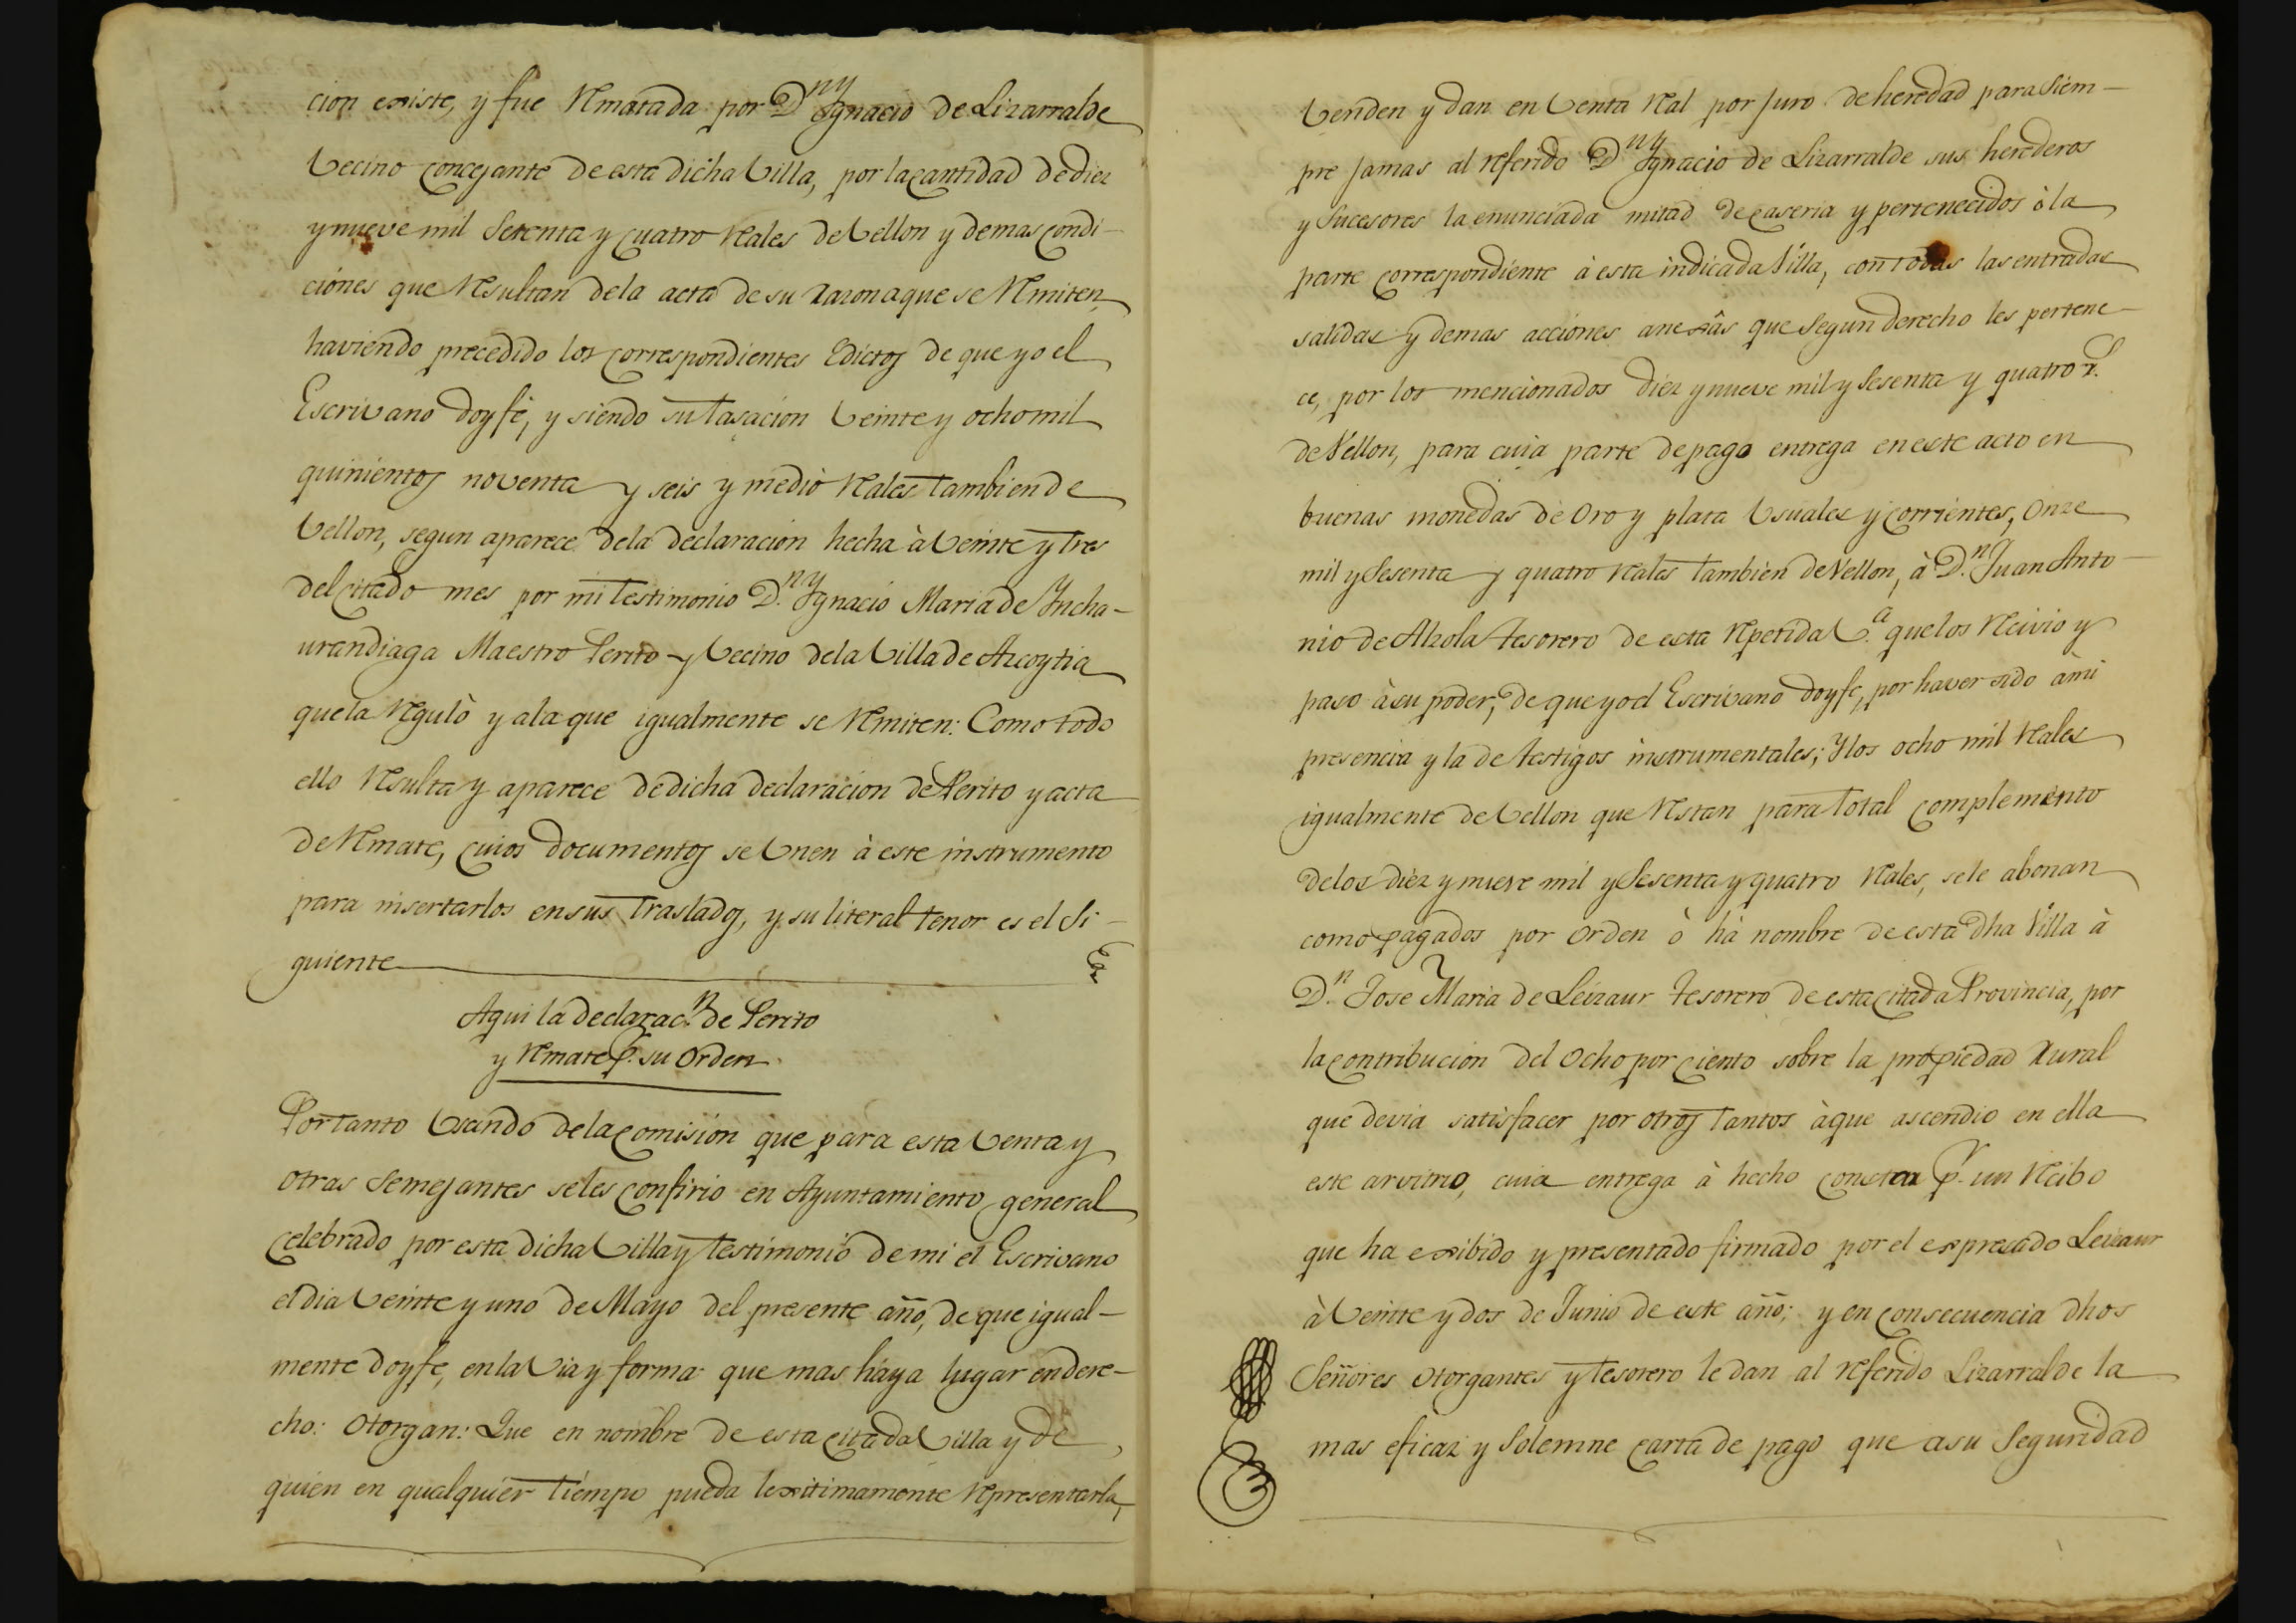 cion existe, y fue Rematada por Dn Ygnacio de Lizarralde
Vecino concejante de esta dicha Villa, por la cantidad de diez
y nueve mil Setenta y cuatro Reales de Vellon y demas condi-
ciones que Resultan de la acta de su razon a que se Remiten,
haviendo precedido los correspondientes Edictos de que yo el
Escrivano doy fe, y siendo su tasacion Veinte y ocho mil
quinientos noventa y seis y medio Reales tambien de
Vellon, segun aparece de la declaracion hecha à Veinte y tres
del citado mes por mi testimonio D.n Ygnacio Maria de Yncha-
urandiaga Maestro Perito y Vecino de la Villa de Azcoytia
que la Regulò y a la que igualmente se Remiten: Como todo
ello Resulta y aparece de dicha declaracion de Perito y acta
de Remate, cuios documentos se Unen à este instrumento
para insertarlos en sus traslados, y su literal tenor es el Si-
guiente
Aqui la declarac.n de Perito
y Remate p.r su orden
Por tanto Usando de la comision que para esta Venta y
otras Semejantes se les confirio en Ayuntamiento general
celebrado por esta dicha Villa y testimonio de mi el Escrivano
el dia Veinte y uno de Mayo del presente año, de que igual-
mente doy fe, en la Via y forma que mas haya lugar en dere-
cho: Otorgan: Que en nombre de esta citada Villa y de
quien en qualquier tiempo pueda lexitimamente Representarla,
Venden y dan en Venta Real por juro de heredad para Siem-
pre jamas al referido Dn Ygnacio de Lizarralde sus herederos
y Sucesores la enunciada mitad de caseria y pertenecidos ò la
parte correspondiente à esta indicada Villa, con todas las entradas
salidas y demas acciones anexâs que Segun derecho les pertene-
ce, por los mencionados diez y nueve mil y Sesenta y quatro r.s
de Vellon, para cuia parte de pago entrega en este acto en
buenas monedas de Oro y plata Usuales y corrientes, Onze
mil y Sesenta y quatro Reales tambien de Vellon, à D.n Juan Anto-
nio de Alzola tesorero de esta Repetida V.a que los Reciviò y
paso à su poder, de que yo el Escrivano doy fe, por haver sido à mi
presencia y la de testigos instrumentales; Y los ocho mil Reales
igualmente de Vellon que Restan para total complemento
de los diez y nueve mil y Sesenta y quatro Reales, se le abonan
como pagados por Orden ò hà nombre de esta dha Villa à
D.n Jose Maria de Leizaur tesorero de esta citada Provincia, por
la contribucion del Ocho por ciento sobre la propiedad rural
que devia satisfacer por otros tantos à que ascendio en ella
este arvitrio, cuia entrega à hecho constar p.r un Recibo
que ha exibido y presentado firmado por el expresado Leizaur
à Veinte y dos de Junio de este año; y en consecuencia dhos
Señores Otorgantes y tesorero le dan al referido Lizarralde la
mas eficaz y Solemne carta de pago que a su Seguridad